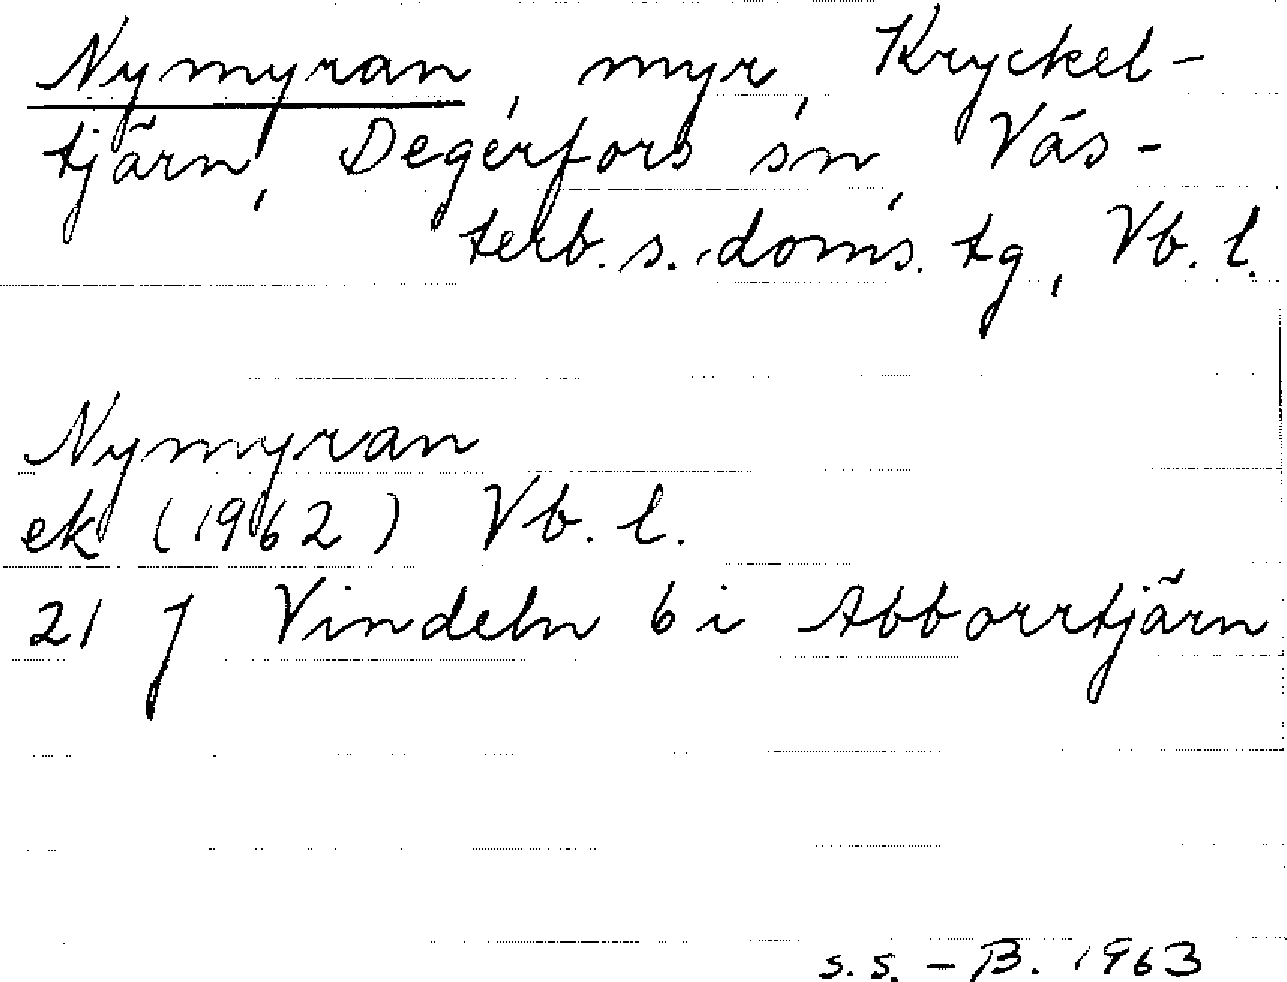 Nymyran, myr, Kryckel-
tjärn, Degerfors sn, Väs-
terb. s. doms. tg, Vb. l.
Nymyran
ek (1962) Vb. l.
21 J Vindeln 6 i Abborrtjärn
s. s. - B. 1963